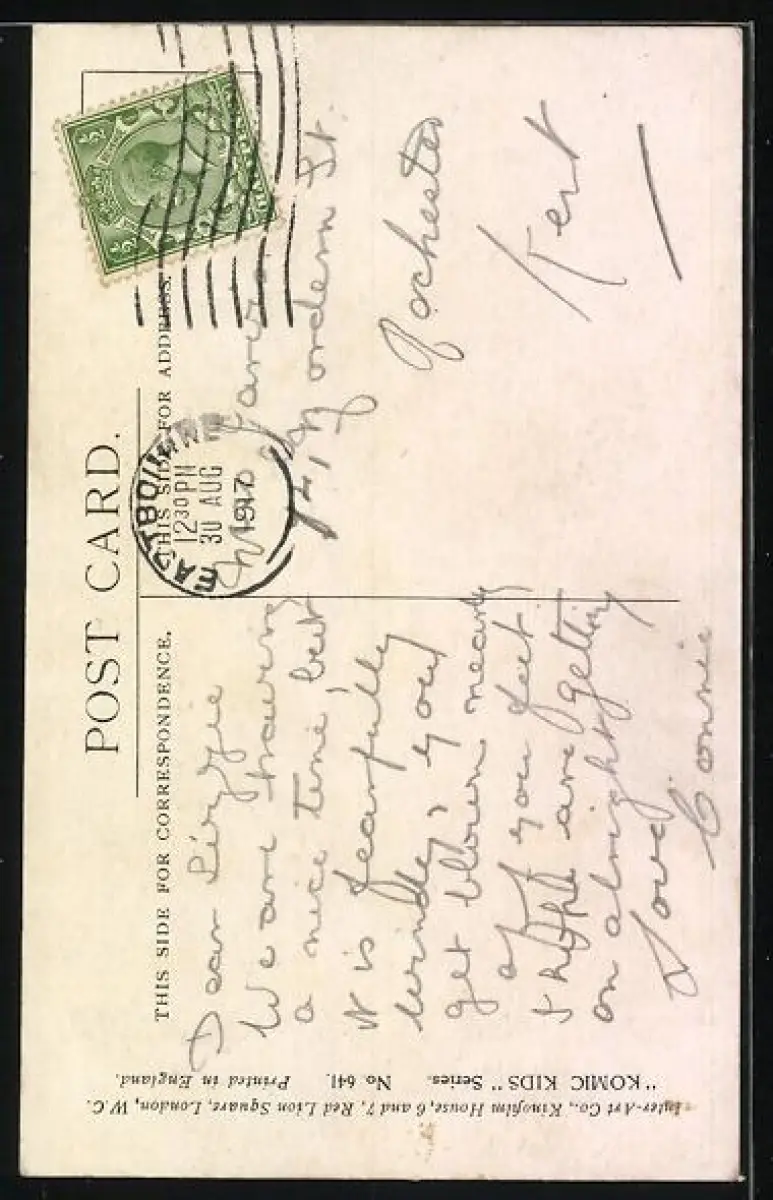 POST CARD.
THIS SIDE FOR CORRESPONDENCE.
THIS SIDE FOR ADDRESS.
½ ½
EASTBOURNE
12 30 PM
30 AUG
1917
Dear Lizzie
We are having
a nice time, but
it is fearfully
windy, you
get blown nearly
of you feet
I hope are getting
on alright
Love
Connie
St.
Rochester
Kent
"KOMIC KIDS" Series. No. 641. Printed in England.
Inter-Art Co., Kinofilm House, 6 and 7, Red Lion Square, London, W.C.